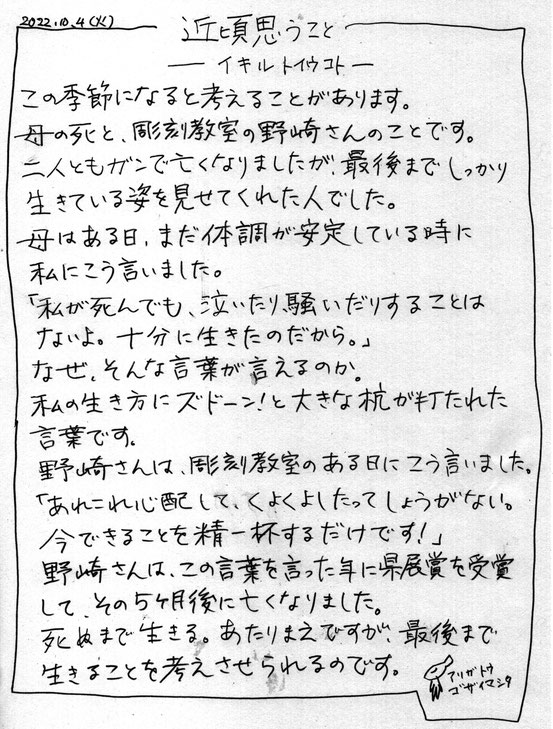 2022.10.4(火)
近頃思うこと
― イキルトイウコト ―
この季節になると考えることがあります。
母の死と、彫刻教室の野崎さんのことです。
二人ともガンで亡くなりましたが、最後までしっかり
生きている姿を見せてくれた人でした。
母はある日、まだ体調が安定している時に
私にこう言いました。
「私が死んでも、泣いたり、騒いだりすることは
ないよ。十分に生きたのだから。」
なぜ、そんな言葉が言えるのか。
私の生き方にズドーン!と大きな杭が打たれた
言葉です。
野崎さんは、彫刻教室のある日にこう言いました。
「あれこれ心配して、くよくよしたってしょうがない。
今できることを精一杯するだけです!」
野崎さんは、この言葉を言った年に県展賞を受賞
して、その5ヶ月後に亡くなりました。
死ぬまで生きる。あたりまえですが、最後まで
生きることを考えさせられるのです。
アリガトウ
ゴザイマシタ